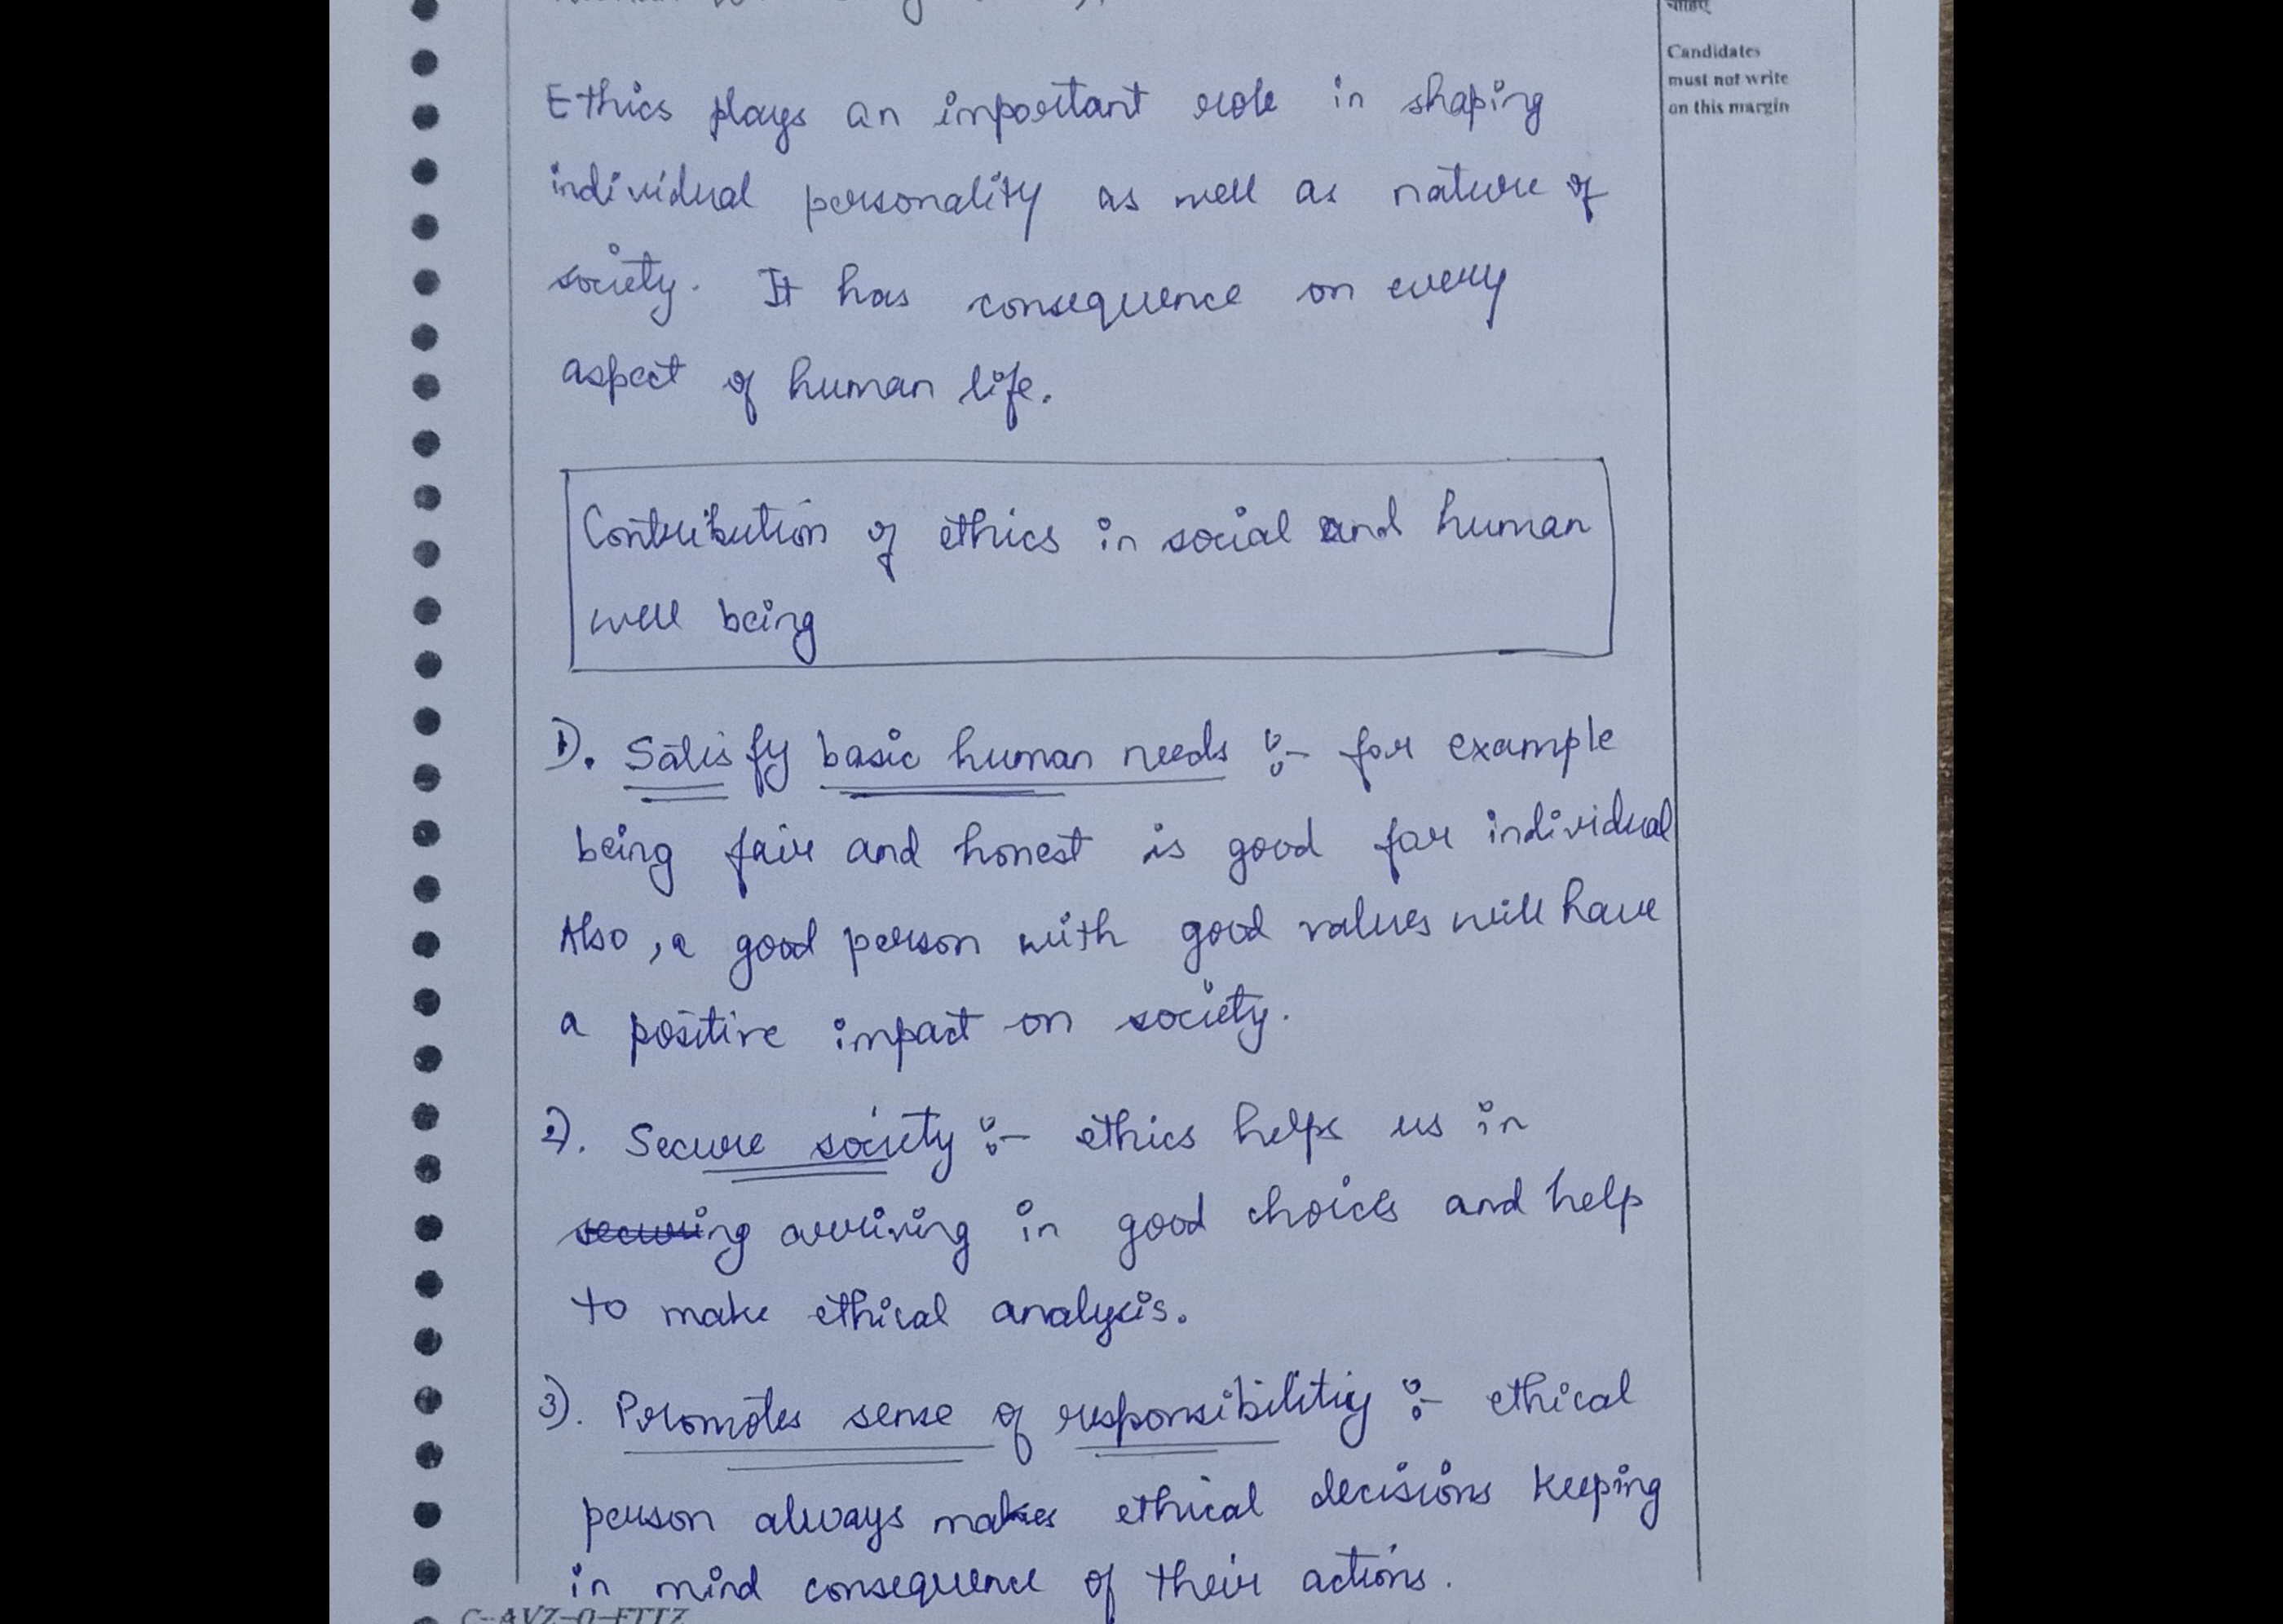 चाहिए
Candidates
must not write
on this margin
Ethics plays an important role in shaping
individual personality as well as nature of
society. It has consequence on every
aspect of human life.
Contribution of ethics in social and human
well being
1). Satisfy basic human needs :- for example
being fair and honest is good for individual
Also, a good person with good values will have
a positive impact on society.
2). Secure society :- ethics helps us in
securing arriving in good choices and help
to make ethical analysis.
3). Promotes sense of responsibilitiy :- ethical
person always makes ethical decisions keeping
in mind consequence of their actions.